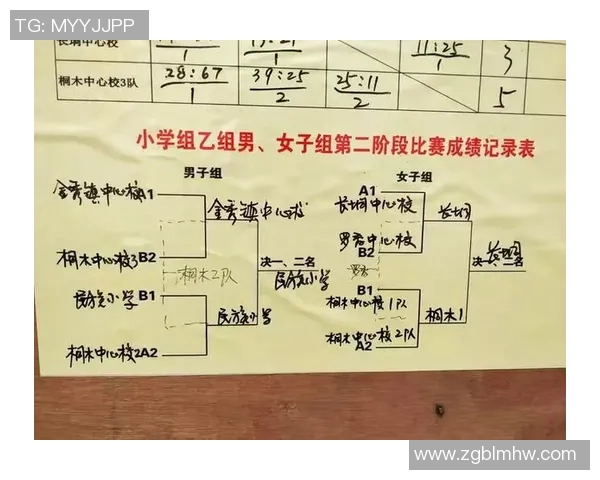 TG: MYYJJPP
长垌中心校
1
1
11:25
1
3
桐木中心校3队
28:67
1
39:25
2
25:11
2
5
小学组乙组男、女子组第二阶段比赛成绩记录表
男子组
女子组
金秀镇中心校A1
金秀镇中心校
桐木中心校3B2
桐木2队
决一、二名
民族小学
民族小学B1
民族小学
桐木中心校2A2
A1
长垌中心校
长垌
罗香中心校
B2
罗香
决一、二名
长垌
B1
桐木中心校1队
桐木1
桐木中心校2队
A2
www.zgblmhw.com